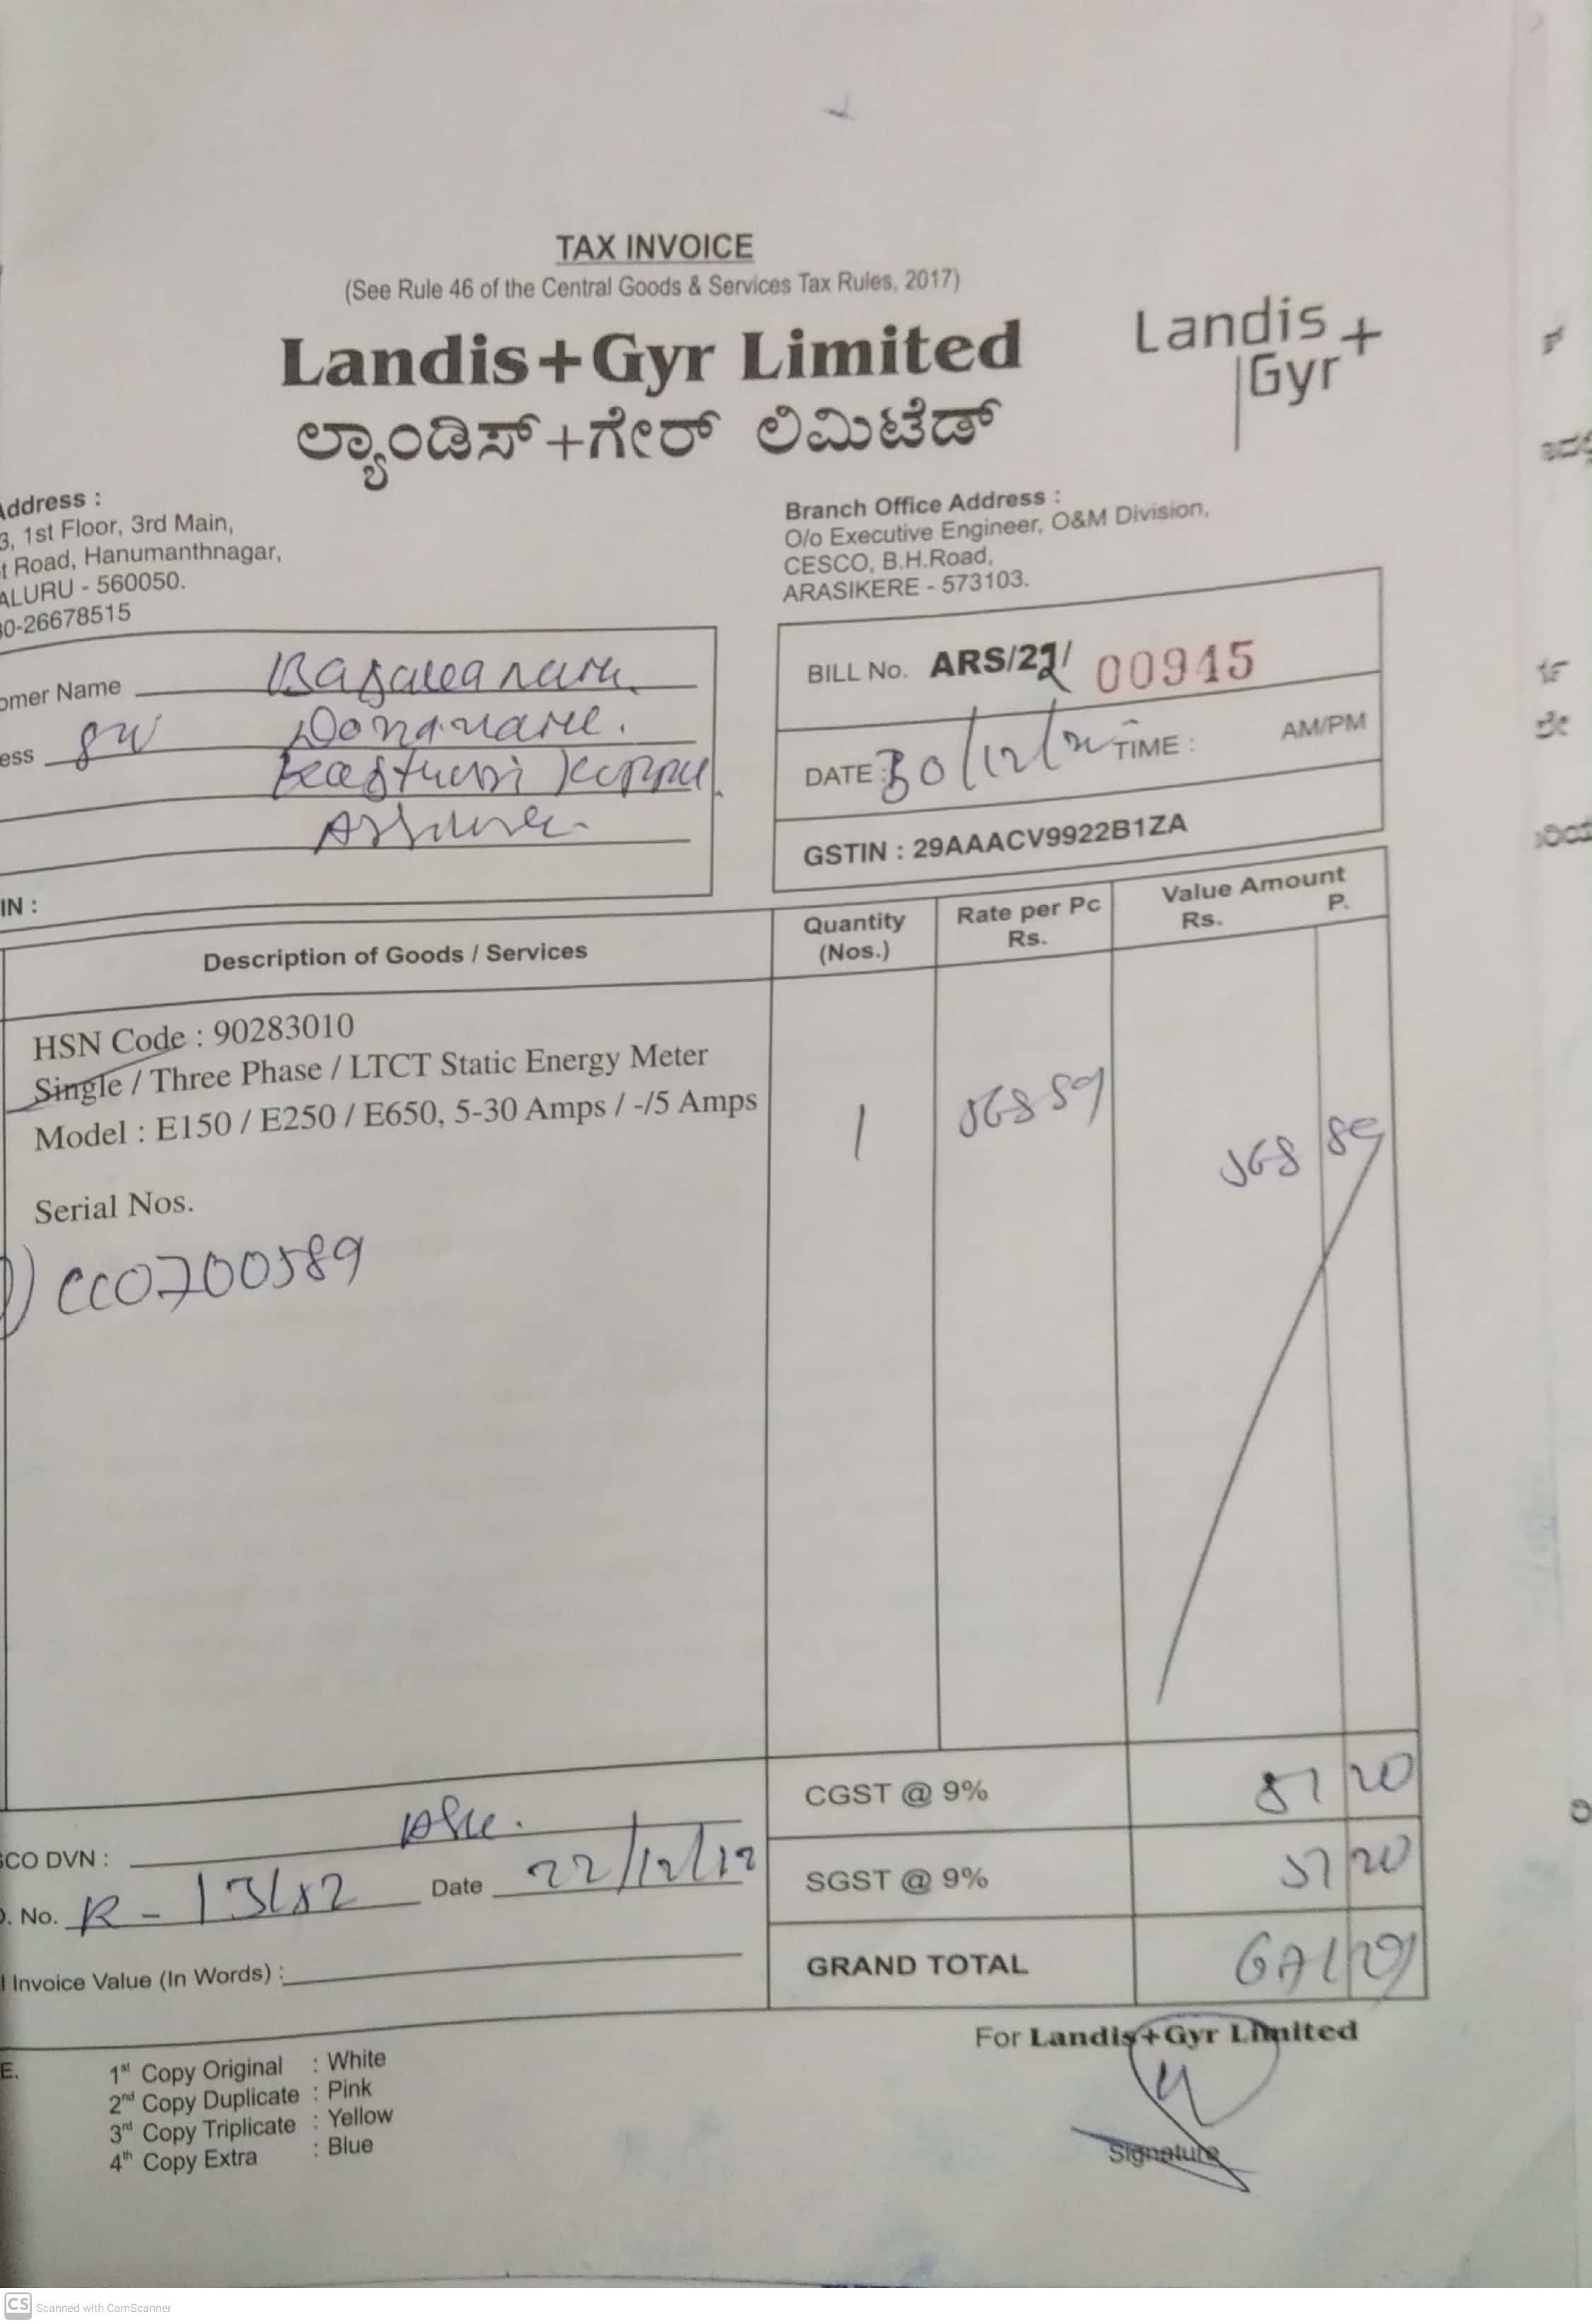 TAX INVOICE
(See Rule 46 of the Central Goods & Services Tax Rules, 2017)
Landis+Gyr Limited
ಲ್ಯಾಂಡಿಸ್+ಗೇರ್ ಲಿಮಿಟೆಡ್
Landis+
Gyr
Address :
3, 1st Floor, 3rd Main,
t Road, Hanumanthnagar,
ALURU - 560050.
30-26678515
Branch Office Address :
O/o Executive Engineer, O&M Division,
CESCO, B.H.Road,
ARASIKERE - 573103.
omer Name
ess
IN :
BILL No. ARS/22/ 00945
DATE : 30/12/ TIME : AM/PM
GSTIN : 29AAACV9922B1ZA
Description of Goods / Services
Quantity
(Nos.)
Rate per Pc
Rs.
Value Amount
Rs. P.
HSN Code : 90283010
Single / Three Phase / LTCT Static Energy Meter
Model : E150 / E250 / E650, 5-30 Amps / -/5 Amps
1
568 89
Serial Nos.
CC0700589
CGST @ 9% 51 20
SGST @ 9% 51 20
GRAND TOTAL 671 29
SCO DVN :
. No. Date 22/12/
l Invoice Value (In Words) :
For Landis+Gyr Limited
Signature
E.
1st Copy Original : White
2nd Copy Duplicate : Pink
3rd Copy Triplicate : Yellow
4th Copy Extra : Blue
CS Scanned with CamScanner